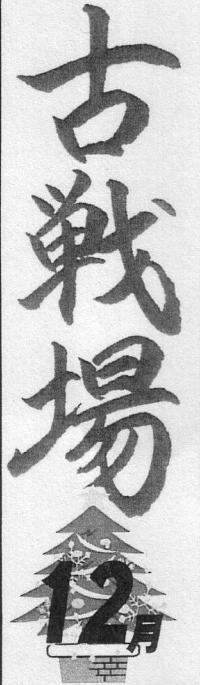 古戦場
12月